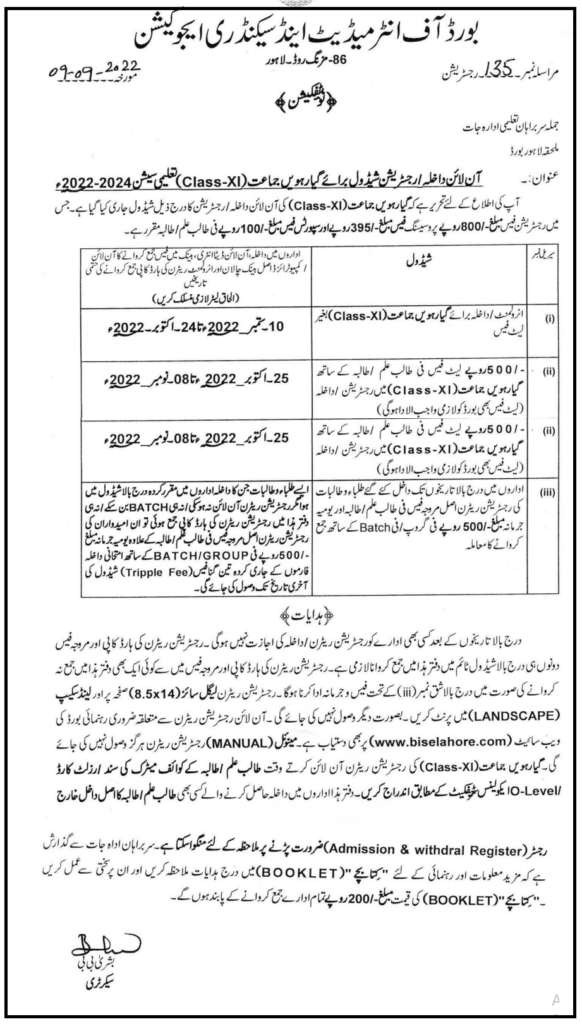 بورڈ آف انٹر میڈیٹ اینڈ سیکنڈری ایجوکیشن
86- مزنگ روڈ۔ لاہور
مراسلہ نمبر 135 رجسٹریشن
مورخہ 09-09-2022
﴿نوٹیفکیشن﴾
جملہ سربراہان تعلیمی ادارہ جات
ملحقہ لاہور بورڈ
عنوان:۔ آن لائن داخلہ/رجسٹریشن شیڈول برائے گیارہویں جماعت (Class-XI) تعلیمی سیشن 2024-2022ء
آپ کی اطلاع کے لئے تحریر ہے کہ گیارہویں جماعت (Class-XI) کی آن لائن داخلہ/رجسٹریشن کا درج ذیل شیڈول جاری کیا گیا ہے۔ جس
میں رجسٹریشن فیس مبلغ -/800 روپے پروسیسنگ فیس مبلغ -/395 روپے اور سپورٹس فیس مبلغ -/100 روپے فی طالب علم/طالبہ مقرر ہے۔
سیریل نمبر
شیڈول
اداروں میں داخلہ، آن لائن ڈیٹا انٹری، بینک میں فیس جمع کروانے کا آن لائن
/کمپیوٹرائزڈ اصل بینک چالان اور انرولمنٹ ریٹرن کی ہارڈ کاپی جمع کروانے کی حتمی
تاریخیں
(الحاق لیٹر لازمی منسلک کریں)
(i)
انرولمنٹ/داخلہ برائے گیارہویں جماعت (Class-XI) بغیر
لیٹ فیس
10- ستمبر 2022ء تا 24- اکتوبر- 2022ء
(ii)
-/500 روپے لیٹ فیس فی طالب علم/طالبہ کے ساتھ
گیارہویں جماعت (Class-XI) میں رجسٹریشن/داخلہ
(لیٹ فیس بھی بورڈ کو لازمی واجب الادا ہوگی)
25- اکتوبر 2022ء تا 08- نومبر 2022ء
(ii)
-/500 روپے لیٹ فیس فی طالب علم/طالبہ کے ساتھ
گیارہویں جماعت (Class-XI) میں رجسٹریشن/داخلہ
(لیٹ فیس بھی بورڈ کو لازمی واجب الادا ہوگی)
25- اکتوبر 2022ء تا 08- نومبر 2022ء
(iii)
اداروں میں درج بالا تاریخوں تک داخل کئے گئے طلباء و طالبات
کی رجسٹریشن ریٹرن اصل مروجہ فیس فی طالب علم/طالبہ اور یومیہ
جرمانہ مبلغ -/500 روپے فی گروپ/فی Batch کے ساتھ جمع
کروانے کا معاملہ
ایسے طلباء و طالبات جن کا داخلہ اداروں میں مقرر کردہ درج بالا شیڈول میں
ہوا مگر رجسٹریشن ریٹرن آن لائن نہ ہوگی نہ ہی BATCH بن سکے/نہ ہی
دفتر ہذا میں رجسٹریشن ریٹرن کی ہارڈ کاپی جمع ہوئی تو ان امیدواران کی
رجسٹریشن ریٹرن اصل مروجہ فیس فی طالب علم/طالبہ کے علاوہ یومیہ جرمانہ مبلغ
-/500 روپے فی BATCH/GROUP کے ساتھ امتحانی داخلہ
فارموں کے جاری کردہ تین گنا فیس (Tripple Fee) شیڈول کی
آخری تاریخ تک وصول کی جائے گی۔
﴿ہدایات﴾
درج بالا تاریخوں کے بعد کسی بھی ادارے کو رجسٹریشن ریٹرن/داخلہ کی اجازت نہیں ہوگی۔ رجسٹریشن ریٹرن کی ہارڈ کاپی اور مروجہ فیس
دونوں ہی درج بالا شیڈول ٹائم میں دفتر ہذا میں جمع کروانا لازمی ہے۔ رجسٹریشن ریٹرن کی ہارڈ کاپی اور مروجہ فیس میں سے کوئی ایک بھی دفتر ہذا میں جمع نہ
کروانے کی صورت میں درج بالا شق نمبر (iii) کے تحت فیس و جرمانہ ادا کرنا ہوگا۔ رجسٹریشن ریٹرن لیگل سائز (8.5x14) صفحہ پر اور لینڈ سکیپ
(LANDSCAPE) میں پرنٹ کریں۔ بصورت دیگر وصول نہیں کی جائے گی۔ آن لائن رجسٹریشن ریٹرن سے متعلقہ ضروری رہنمائی بورڈ کی
ویب سائیٹ (www.biselahore.com) پر بھی دستیاب ہے۔ مینوئل (MANUAL) رجسٹریشن ریٹرن ہرگز وصول نہیں کی جائے
گی۔ گیارہویں جماعت (Class-XI) کی رجسٹریشن ریٹرن آن لائن کرتے وقت طالب علم/طالبہ کے کوائف میٹرک کی سند/رزلٹ کارڈ
/O-Level ایکولینس سرٹیفکیٹ کے مطابق اندراج کریں۔ دفتر ہذا اداروں میں داخلہ حاصل کرنے والے کسی بھی طالب علم/طالبہ کا اصل داخل خارج
رجسٹر (Admission & withdral Register) ضرورت پڑنے پر ملاحظہ کے لئے منگوا سکتا ہے۔ سربراہان ادارہ جات سے گذارش
ہے کہ مزید معلومات اور رہنمائی کے لئے "کتابچے" (BOOKLET) میں درج ہدایات ملاحظہ کریں اور ان پر سختی سے عمل کریں
۔ "کتابچے" (BOOKLET) کی قیمت مبلغ -/200 روپے تمام ادارے جمع کروانے کے پابند ہوں گے۔
بشریٰ بی بی
سیکرٹری